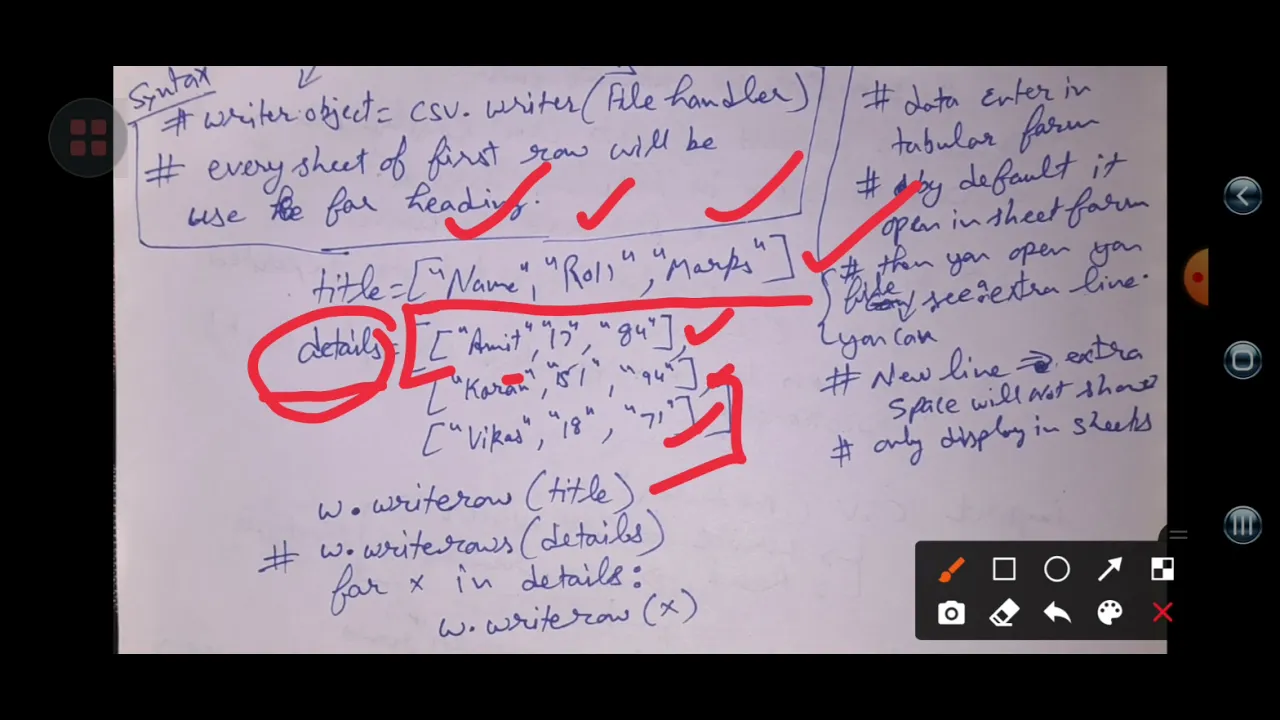 Syntax
# writer object = csv. writer (File handler)
# every sheet of first row will be
use for heading.
title = ["Name", "Roll", "Marks"]
details = [["Amit", "17", "84"],
["Karan", "51", "94"],
["Vikas", "18", "71"]]
w. writerow (title)
# w. writerows (details)
for x in details:
w. writerow (x)
# data Enter in
tabular form
# by default it
open in sheet form
# then you open you
file see extra line.
you can
# New line → extra
space will not show
# only display in sheets